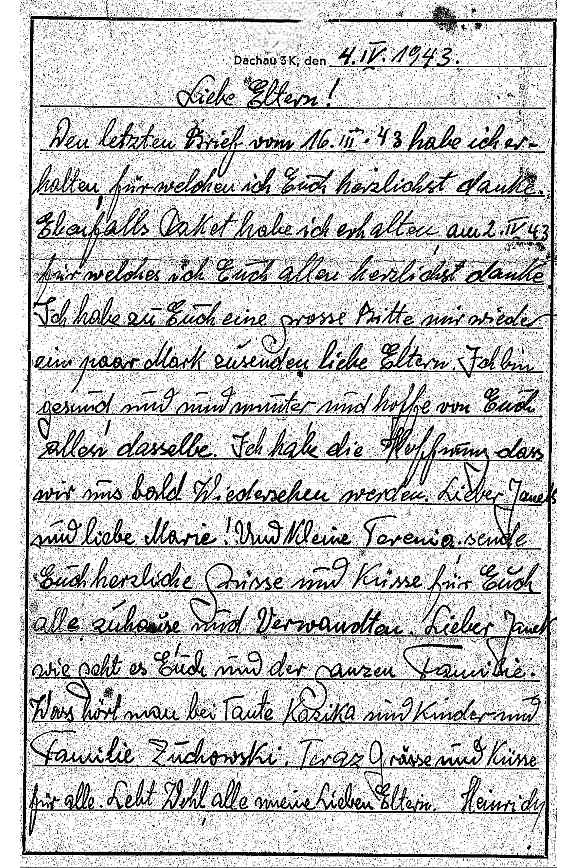 Dachau 3K, den 4.IV.1943.
Liebe Eltern!
Den letzten Brief vom 16.III.43 habe ich er-
halten, für welchen ich Euch herzlichst danke.
Ebenfalls Paket habe ich erhalten am 2.IV.43
für welches ich Euch allen herzlichst danke.
Ich habe zu Euch eine grosse Bitte mir wieder
ein paar Mark zusenden liebe Eltern. Ich bin
gesund und und munter und hoffe von Euch
allen dasselbe. Ich habe die Hoffnung dass
wir uns bald Wiedersehen werden. Lieber Janek
und liebe Marie! Und Kleine Terenia. sende
Euch herzliche Grüsse und Küsse für Euch
alle zuhause und Verwandten. Lieber Janek
wie geht es Euch und der ganzen Familie.
Was hört man bei Tante Kazika und Kinder und
Familie Zuchowski. Teraz Grüsse und Küsse
für alle. Lebt Wohl alle meine Lieben Eltern. Heinrich